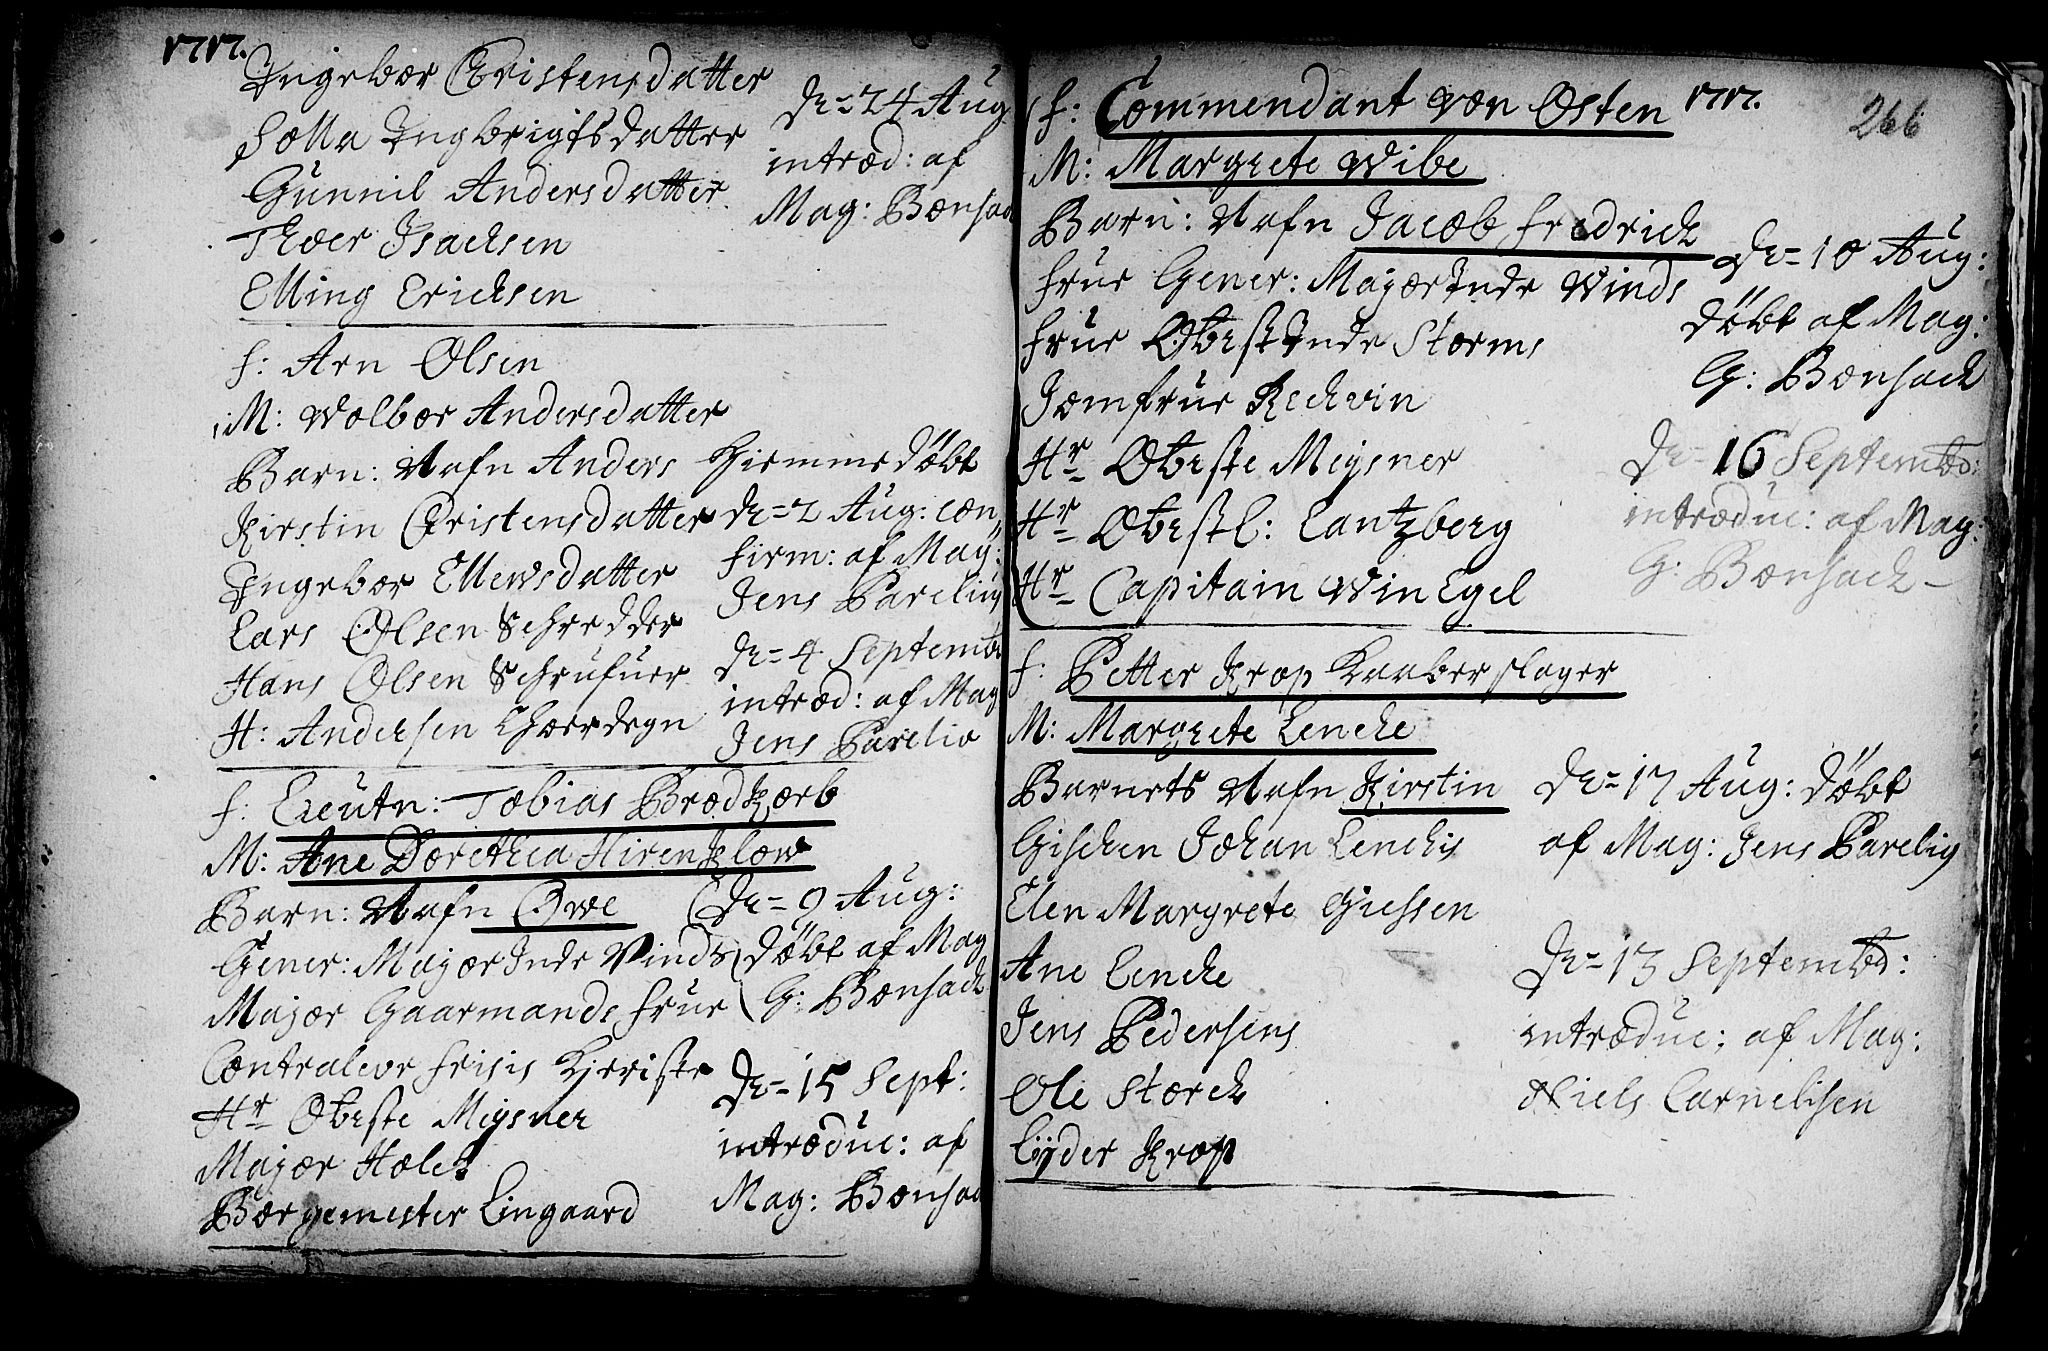 1717.
Ingebor Christensdatter
Solla Ingbrigtsdatter
Gunnil Andersdatter
Thoer Isachsen
Elling Erichsen
de= 24 Aug
introd: af
Mag: Bonsac
f: Arn Olsen
M: Wolbor Andersdatter
Barn: Nafn Anders
Kirstin Christensdatter
Ingebor Ellewsdatter
Lars Olsen Schredder
Hans Olsen
H: Andersen Choerdegn
Hiemme döbt
de= 2 Aug: con
firm: af Mag:
Jens Parelius
de= 4 Septemb
introd: af Mag
Jens Parelio
f: Lieutn: Tobias Brodkorb
M: Ane Dorethea Hirenklow
Barn: Nafn Owe
Gener: Majorinde Vinds
Major Gaarmands frue
Contraleur frisis Kjeriste
Hr Oberste Meysner
Major Holst
Borgemester Lingaard
de= 9 Aug:
döbt af Mag
G: Bonsach
de= 15 Sept:
introduc: af
Mag: Bonsac
1717.
266
f: Commendant von Osten
M: Margrete Wibe
Barn: Nafn Jacob Fredrich
frue Gener: Majorinde Winds
frue Oberstinde Storms
Jomfrue Reckvin
Hr Oberste Meysner
Hr Oberstl: Lantzberg
Hr Capitain Winegel
de= 10 Aug:
döbt af Mag:
G: Bonsach
de= 16 Septemb:
introduc: af Mag:
G: Bonsach
f: Petter Krop Kaaberslager
M: Margrete Lenche
Barnets Nafn Kirstin
Gischen Johan Lenchis
Elen Margrete Giessen
Ane Lenche
Jens Pedersens
Ole Storch
Lyder Krop
de= 17 Aug: döbt
af Mag: Jens Parelig
de= 13 Septemb:
introduc: af Mag:
Niels Cornelisen